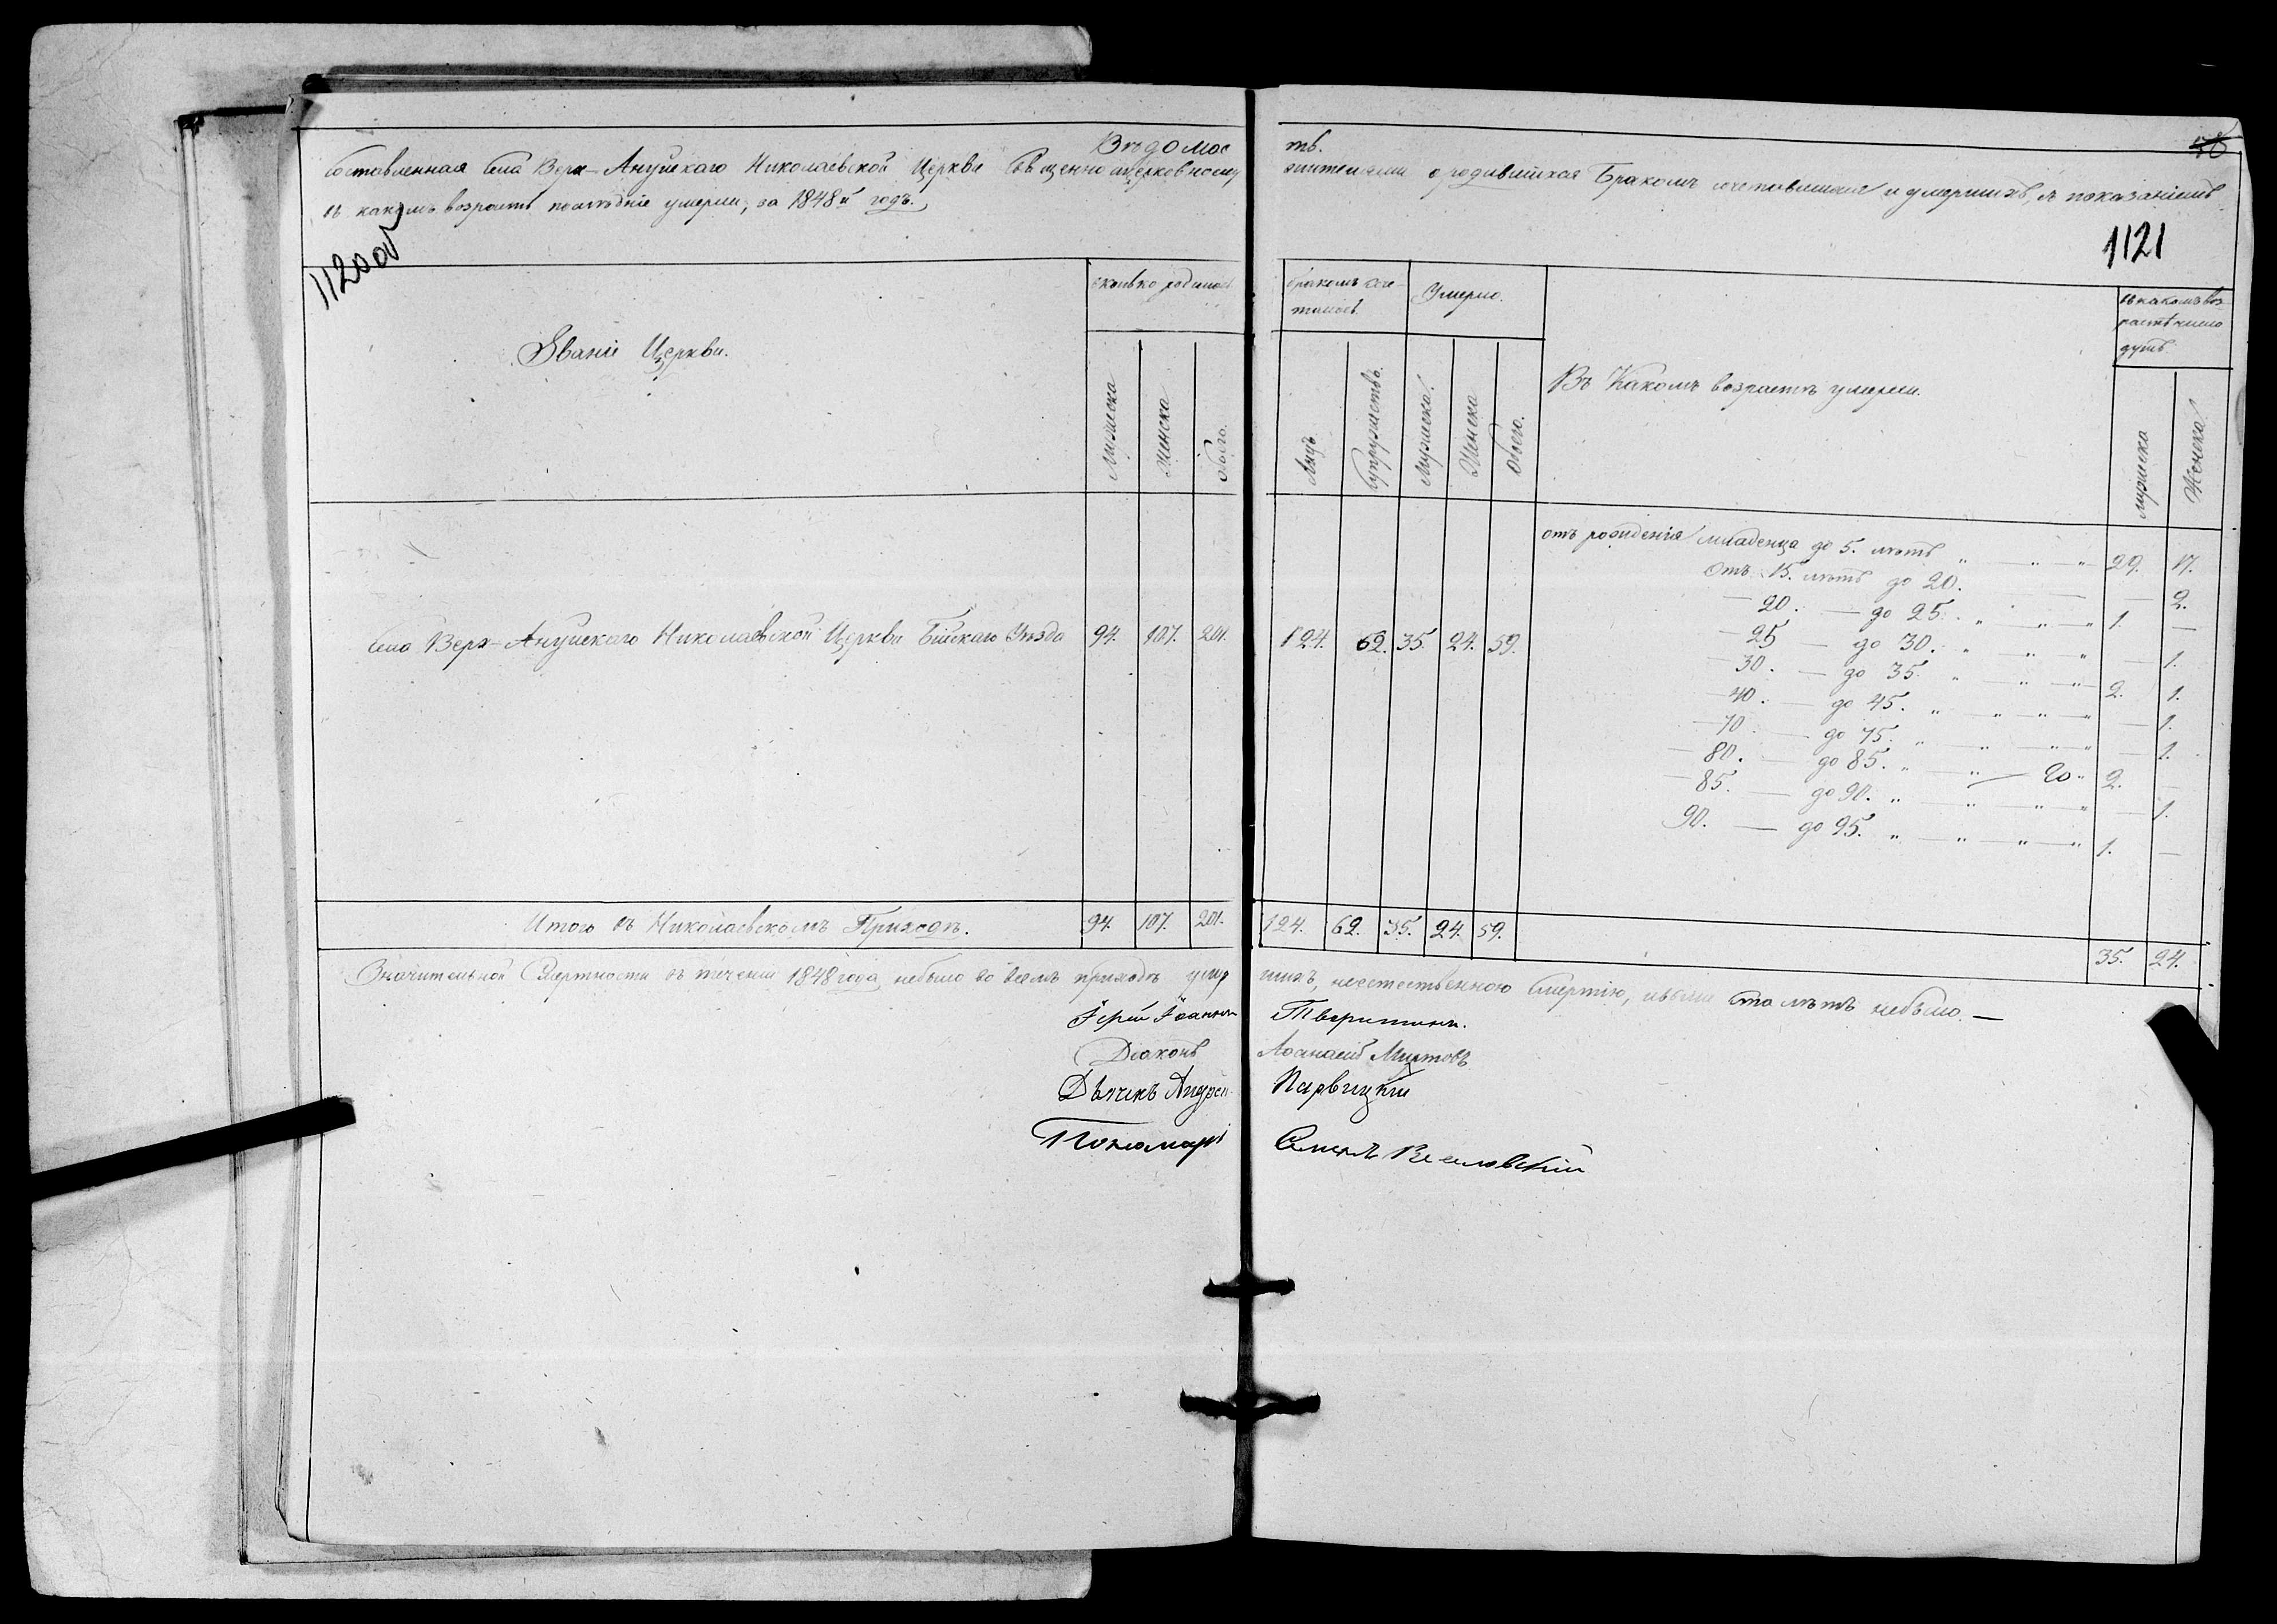 Вѣдомость.
Составленная села Верх-Ануйскаго Николаевской Церкви Священноцерковнослужителями о родившихся Бракомъ сочетавшихся и умершихъ, съ показаніемъ
въ какомъ возрастѣ послѣдніе умерли, за 1848й годъ.
1120об
1121
Званіе Церкви.
сколько родилось
бракомъ соче-
талось.
Умерло.
Въ Какомъ возрастѣ умерли.
въ какомъ воз-
растѣ число
душъ
Мужеска
Женска
Обоего.
Лицъ
Супружествъ.
Мужеска.
Женска
Обоего.
мужеска
Женска
Села Верх-Ануйскаго Николаевской Церкви Бійскаго Уѣзда 94. 107. 201. 124. 62. 35. 24. 59.
отъ рожденія младенца до 5. лѣтъ „ — „ — „ — 29. 17.
Отъ 15. лѣтъ до 20. — — 2.
— 20. — до 25. „ — „ — „ 1. —
— 25 — до 30. „ — „ — „ — 1.
— 30. — до 35. „ — „ — „ 2. 1.
— 40. — до 45. „ — „ — „ — „ — 1.
— 70. — до 75. „ — „ — „ — „ — 1.
— 80. — до 85. „ — „ — 20 „ 2. —
— 85. — до 90. „ — „ — „ — „ — 1.
90. — до 95. „ — „ — „ — „ 1. —
Итого въ Николаевскомъ Приходѣ. 94. 107. 201. 124. 62. 35. 24. 59. 35. 24.
Значительной Смертности въ теченіи 1848 года небыло во всемъ приходѣ умершихъ, неестественною Смертію, и выше ста лѣтъ небыло. —
Іерей Іоаннъ Тверитинъ.
Діаконъ Аѳанасій Миртовъ
Дьячекъ Андрей Парвицкій
Пономарь Веселовскій